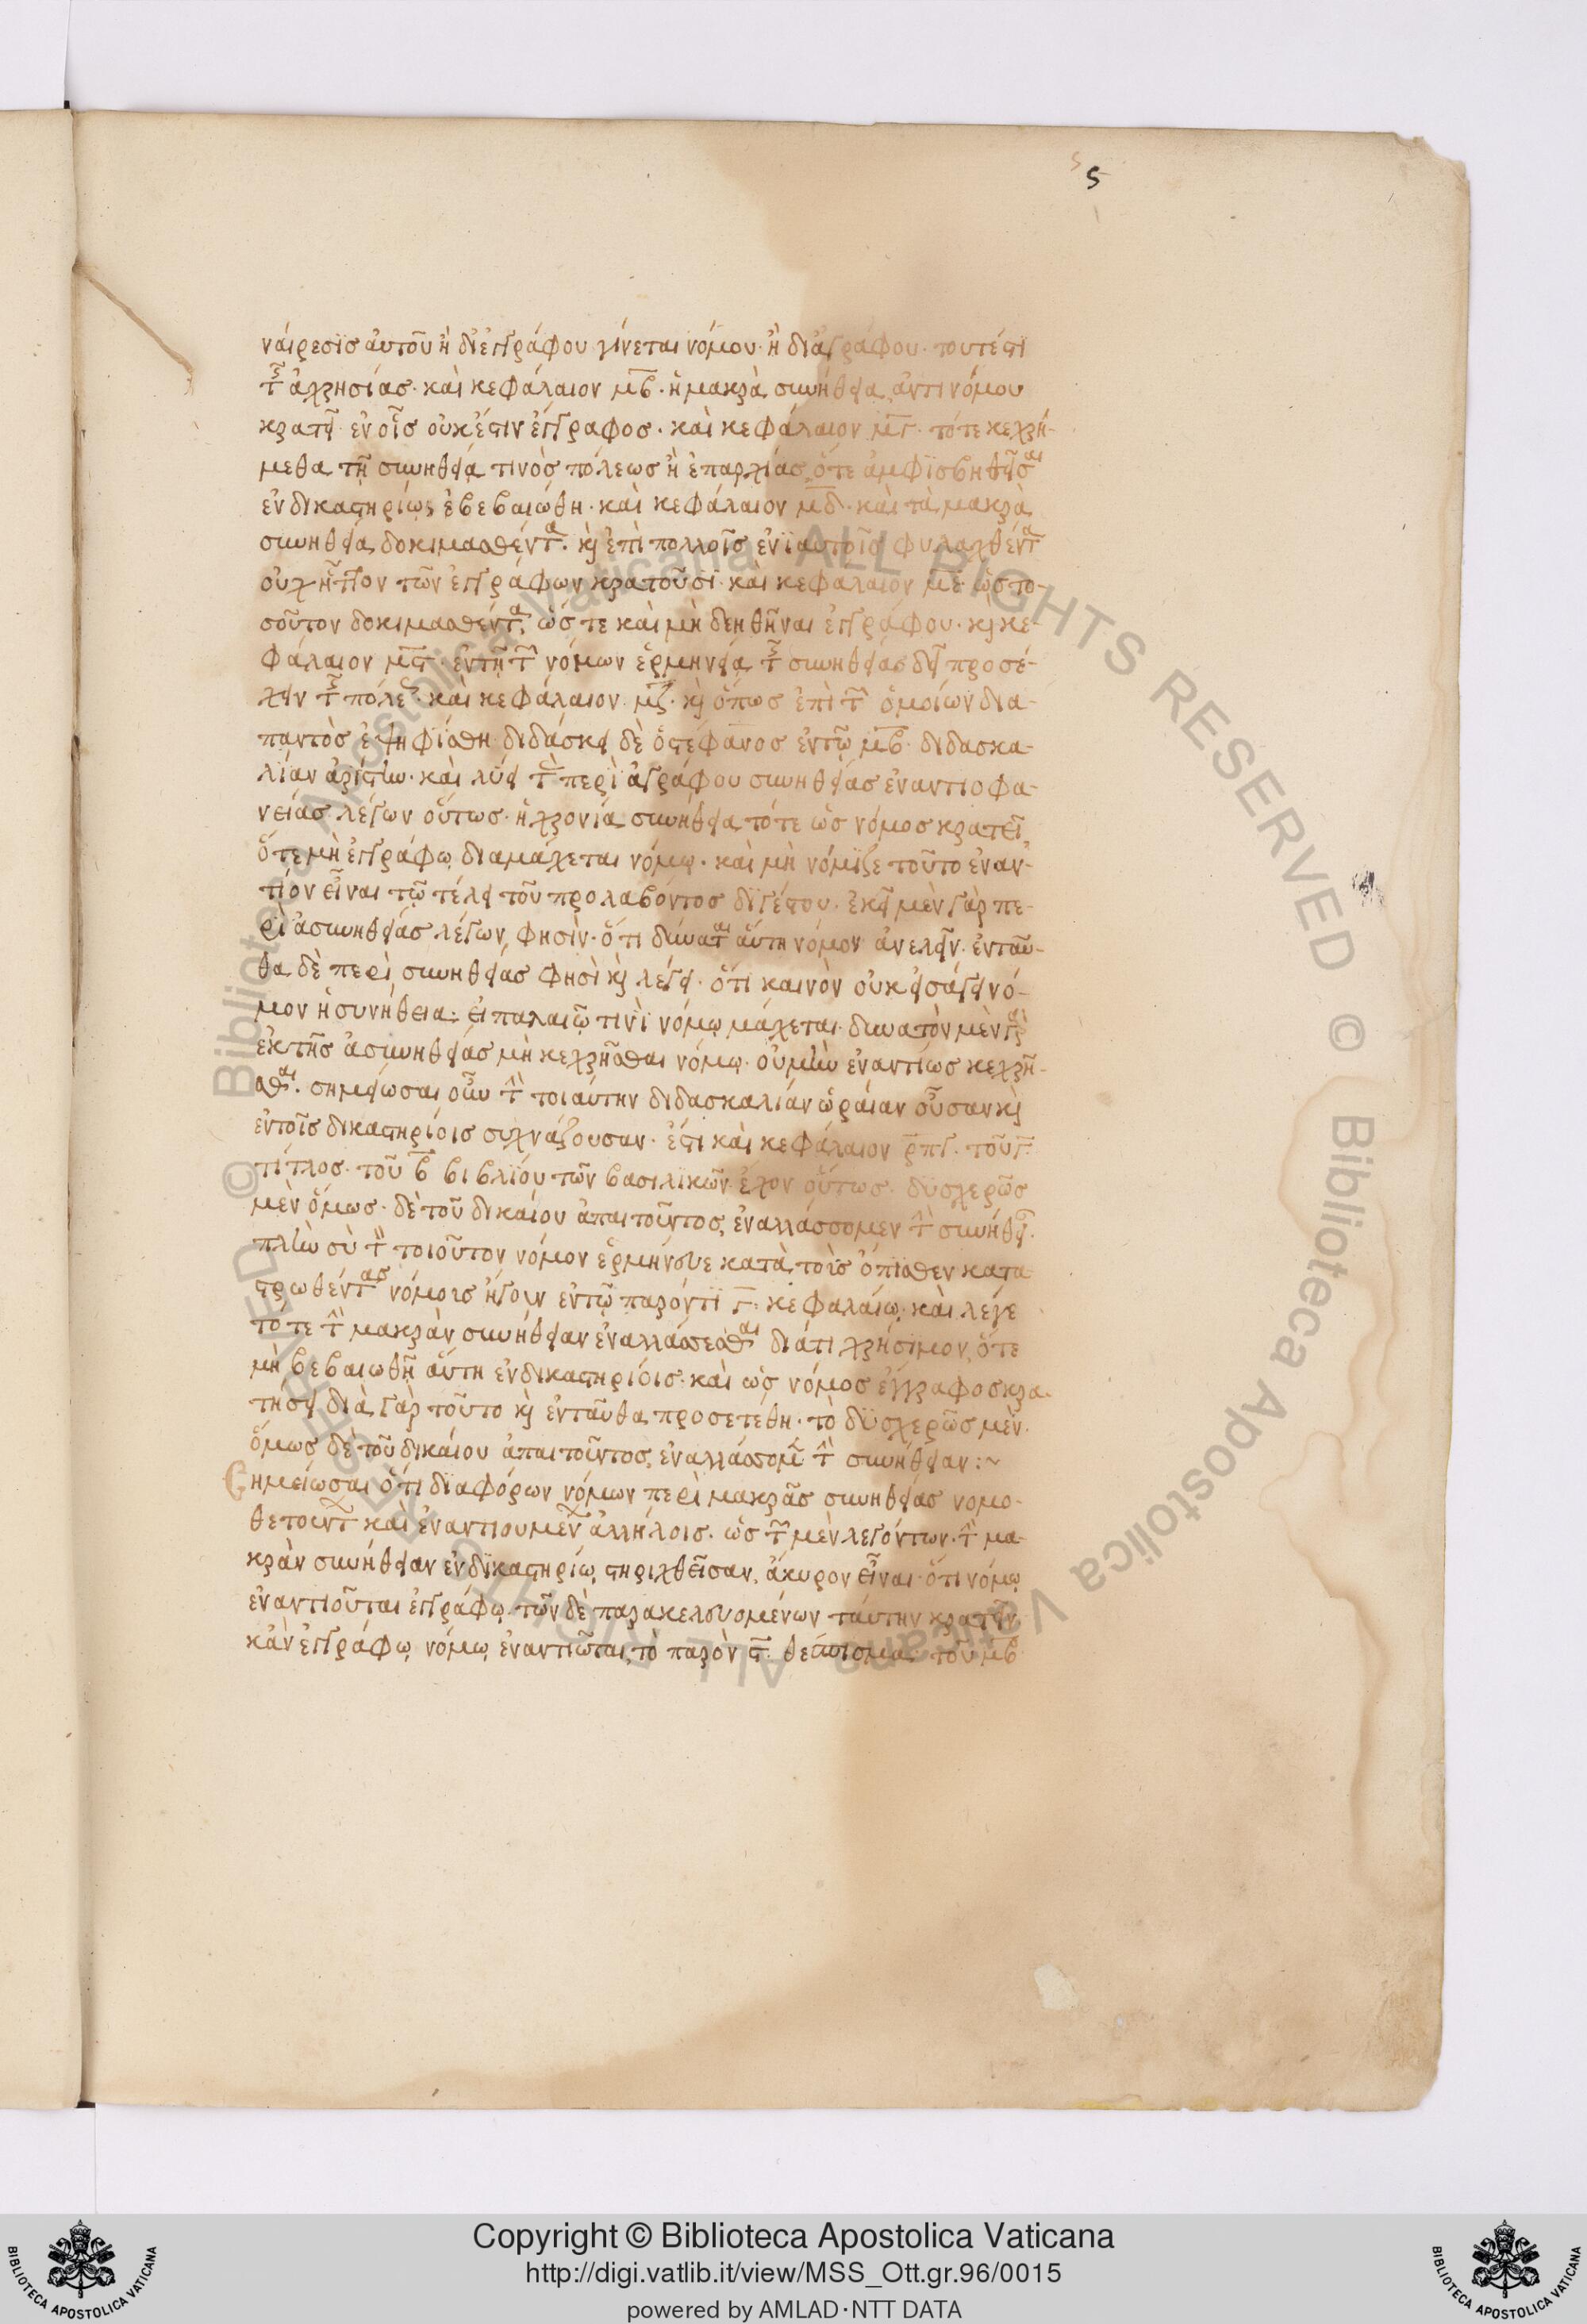 5
5
ναίρεσϊσ ἀυτοῦ ἢ δϊἐγγράφου γίνεται νόμου· ἢ δϊἀγράφου· τουτέστϊ
τῆς ἀχρησίας· καὶ κεφάλαιον μβ· ἡ μακρὰ συνήθεια ἀντινόμου
κρατεῖ· ἐν οἷς οὐκ ἔστιν ἔγγραφος· καὶ κεφάλαιον μγ· τότε κεχρή-
μεθα τῇ συνηθεία τινὸς πόλεως ἢ ἐπαρχίας, ὅτε ἀμφϊσβηθεῖσαι
ἐν δικαστηρίω, ἐβεβαιώθη· καὶ κεφάλαιον μδ· καὶ τὰ μακρᾶ
συνηθεία δοκιμασθέντα· κ(αὶ) ἐπὶ πολλοῖς ἐνϊαυτοῖς φυλαχθέντα
οὐχ ἧττον τῶν ἐγγράφων κρατοῦσϊ· καὶ κεφάλαιον με· ὡς το-
σοῦτον δοκιμασθέντα, ὥς τε καὶ μὴ δεηθῆναι ἐγγράφου· κ(αὶ) κε-
φάλαιον μς· ἐν τῇ τῶν νόμων ἑρμηνεία τῆς συνηθείας δεῖ προσέ-
χειν τῆς πόλεως· καὶ κεφάλαιον μζ· κ(αὶ) ὅπως ἐπὶ τῶν ὁμοίων δια-
παντὸς ἐψηφίσθη· διδάσκει δὲ ὁ στέφανος ἐν τῷ μβ· διδασκα-
λίαν ἀρίστην· καὶ λύει τὰς περὶ ἀγράφου συνηθείας ἐναντιοφα-
νείας λέγων οὕτως· ἡ χρονία συνήθεια τότε ὡς νόμος κρατεῖ,
ὅτε μὴ ἐγγράφω διαμάχεται νόμω· καὶ μὴ νόμϊζε τοῦτο ἐναν-
τίον εἶναι τῷ τέλει τοῦ προλαβόντος δϊγέστου· ἐκεῖ μὲν γὰρ πε-
ρὶ ἀσυνηθείας λέγων, φησὶν· ὅτι δύναται αὕτη νόμον ἀνελεῖν· ἐνταῦ-
θα δὲ περὶ συνηθείας φησὶ κ(αὶ) λέγει· ὅτι καινὸν οὐκ εἰσάγει νό-
μον ἡ συνήθεια· εἰ παλαιῷ τινὶ νόμω μάχεται· δυνατὸν μὲν γὰρ
ἐκ τῆς ἀσυνηθείας μὴ κεχρῆσθαι νόμω· οὐ μὴν ἐναντίως κεχρῆ-
σθαι· σημείωσαι οὖν τὴν τοιαύτην διδασκαλίαν ὡραίαν οὖσαν κ(αὶ)
ἐν τοῖς δικαστηρίοις συχνάζουσαν· ἔστι καὶ κεφάλαιον ρπγ· τοῦ γ
τίτλος· τοῦ β βιβλίου τῶν βασιλικῶν ἔχον οὕτως· δυσχερῶς
μὲν ὅμως· δὲ τοῦ δικαίου ἀπαιτοῦντος, ἐναλλάσσομεν τὴν συνήθει(αν)·
πλὴν σὺ τὸν τοιοῦτον νόμον ἑρμήνευε κατὰ τοῖς ὄπϊσθεν κατα
στρωθέντας νόμοις ἤγουν ἐν τῷ παρόντϊ γ· κεφαλαίω· καὶ λέγε
τότε τὴν μακρὰν συνήθειαν ἐναλλάσσεσθαι διάτι χρήσϊμον, ὅτε
μὴ βεβαιωθῇ αὕτη ἐν δικαστηρίοις· καὶ ὡς νόμος ἔγγραφος κρα-
τήσει διὰ γὰρ τοῦτο κ(αὶ) ἐνταῦθα προσετέθη· τὸ δϋσχερῶς μὲν·
ὅμως δὲ τοῦ δικαίου ἀπαιτοῦντος, ἐναλλάσσομεν τὴν συνήθειαν :~
Σημείωσαι ὅτι διαφόρων νόμων περὶ μακρᾶς συνηθείας νομο-
θετούντων καὶ ἐναντιουμένων ἀλλήλοις· ὡς τῶν μὲν λεγόντων· τὴν μα-
κρὰν συνήθειαν ἐν δϊκαστηρίω στηριχθεῖσαν, ἄκυρον εἶναι· ὅτι νόμω
ἐναντιοῦται ἐγγράφω· τῶν δὲ παρακελευομένων ταύτην κρατεῖν,
κἂν ἐγγράφω νόμω ἐναντιῶται, τὸ παρὸν στ· θέσπισμα· τοῦ μβ